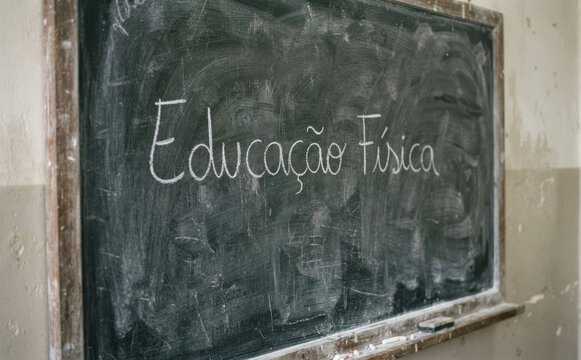 Educação Física